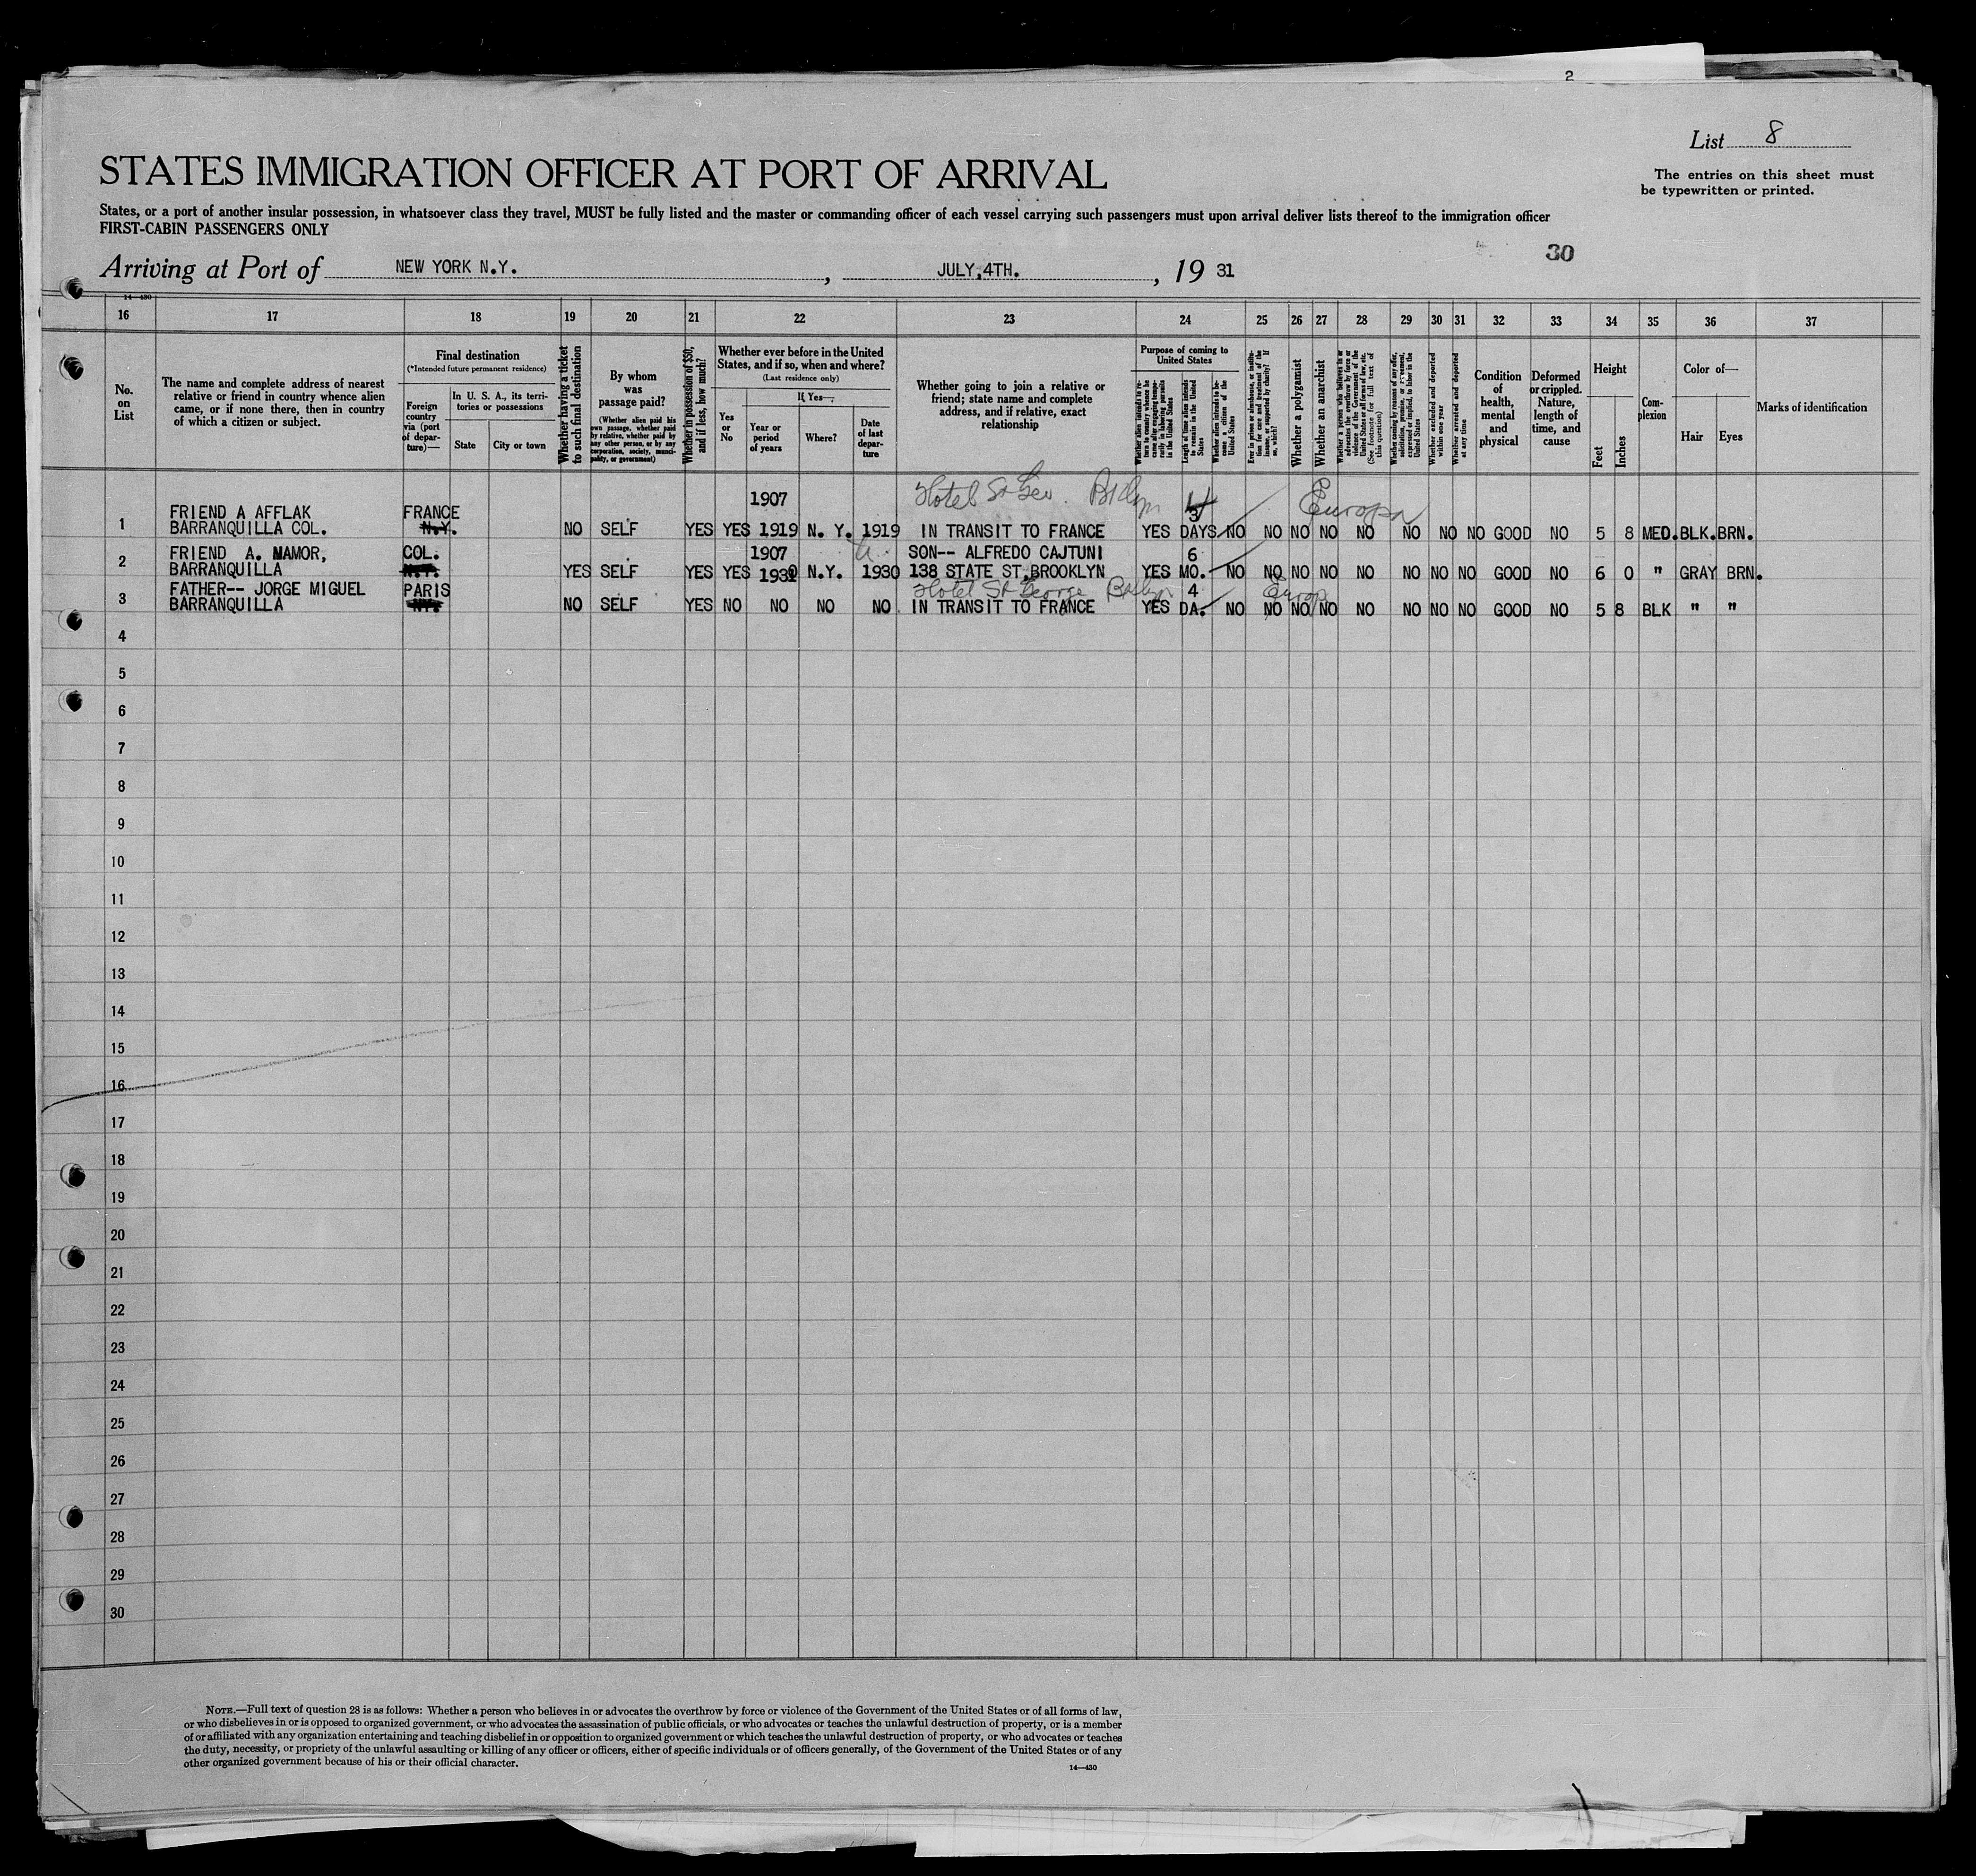 2
List 8
STATES IMMIGRATION OFFICER AT PORT OF ARRIVAL
The entries on this sheet must
be typewritten or printed.
States, or a port of another insular possession, in whatsoever class they travel, MUST be fully listed and the master or commanding officer of each vessel carrying such passengers must upon arrival deliver lists thereof to the immigration officer
FIRST-CABIN PASSENGERS ONLY
30
Arriving at Port of NEW YORK N.Y. , JULY,4TH. , 19 31
14-430
16 17 18 19 20 21 22 23 24 25 26 27 28 29 30 31 32 33 34 35 36 37
No.
on
List
The name and complete address of nearest
relative or friend in country whence alien
came, or if none there, then in country
of which a citizen or subject.
Final destination
(*Intended future permanent residence)
Foreign
country
via (port
of depar-
ture)—
In U. S. A., its terri-
tories or possessions
State
City or town
Whether having a ticket
to such final destination
By whom
was
passage paid?
(Whether alien paid his
own passage, whether paid
by relative, whether paid by
any other person, or by any
corporation, society, munici-
pality, or government)
Whether in possession of $50,
and if less, how much?
Whether ever before in the United
States, and if so, when and where?
(Last residence only)
Yes
or
No
If Yes—
Year or
period
of years
Where?
Date
of last
depar-
ture
Whether going to join a relative or
friend; state name and complete
address, and if relative, exact
relationship
Purpose of coming to
United States
Length of time alien intends
to remain in the United
States
Whether alien intends to be-
come a citizen of the
United States
Whether a polygamist
Whether an anarchist
Whether excluded and deported
within one year
Whether arrested and deported
at any time
Condition
of
health,
mental
and
physical
Deformed
or crippled.
Nature,
length of
time, and
cause
Height
Feet
Inches
Com-
plexion
Color of—
Hair
Eyes
Marks of identification
Hotel St Geo. Bklyn
Europa
1907
3
FRIEND A AFFLAK FRANCE
1 BARRANQUILLA COL. N.Y. NO SELF YES YES 1919 N. Y. 1919 IN TRANSIT TO FRANCE YES DAYS NO NO NO NO NO NO NO NO GOOD NO 5 8 MED. BLK. BRN.
FRIEND A. MAMOR, COL. 1907 SON-- ALFREDO CAJTUNI 6
2 BARRANQUILLA N.Y. YES SELF YES YES 1930 N.Y. 1930 138 STATE ST,BROOKLYN YES MO. NO NO NO NO NO NO NO NO GOOD NO 6 0 " GRAY BRN.
FATHER-- JORGE MIGUEL PARIS Hotel St George Bklyn 4 Europa
3 BARRANQUILLA NY. NO SELF YES NO NO NO NO IN TRANSIT TO FRANCE YES DA. NO NO NO NO NO NO NO NO GOOD NO 5 8 BLK " "
4
5
6
7
8
9
10
11
12
13
14
15
16
17
18
19
20
21
22
23
24
25
26
27
28
29
30
NOTE.—Full text of question 28 is as follows: Whether a person who believes in or advocates the overthrow by force or violence of the Government of the United States or of all forms of law,
or who disbelieves in or is opposed to organized government, or who advocates the assassination of public officials, or who advocates or teaches the unlawful destruction of property, or is a member
of or affiliated with any organization entertaining and teaching disbelief in or opposition to organized government or which teaches the unlawful destruction of property, or who advocates or teaches
the duty, necessity, or propriety of the unlawful assaulting or killing of any officer or officers, either of specific individuals or of officers generally, of the Government of the United States or of any
other organized government because of his or their official character.
14—430